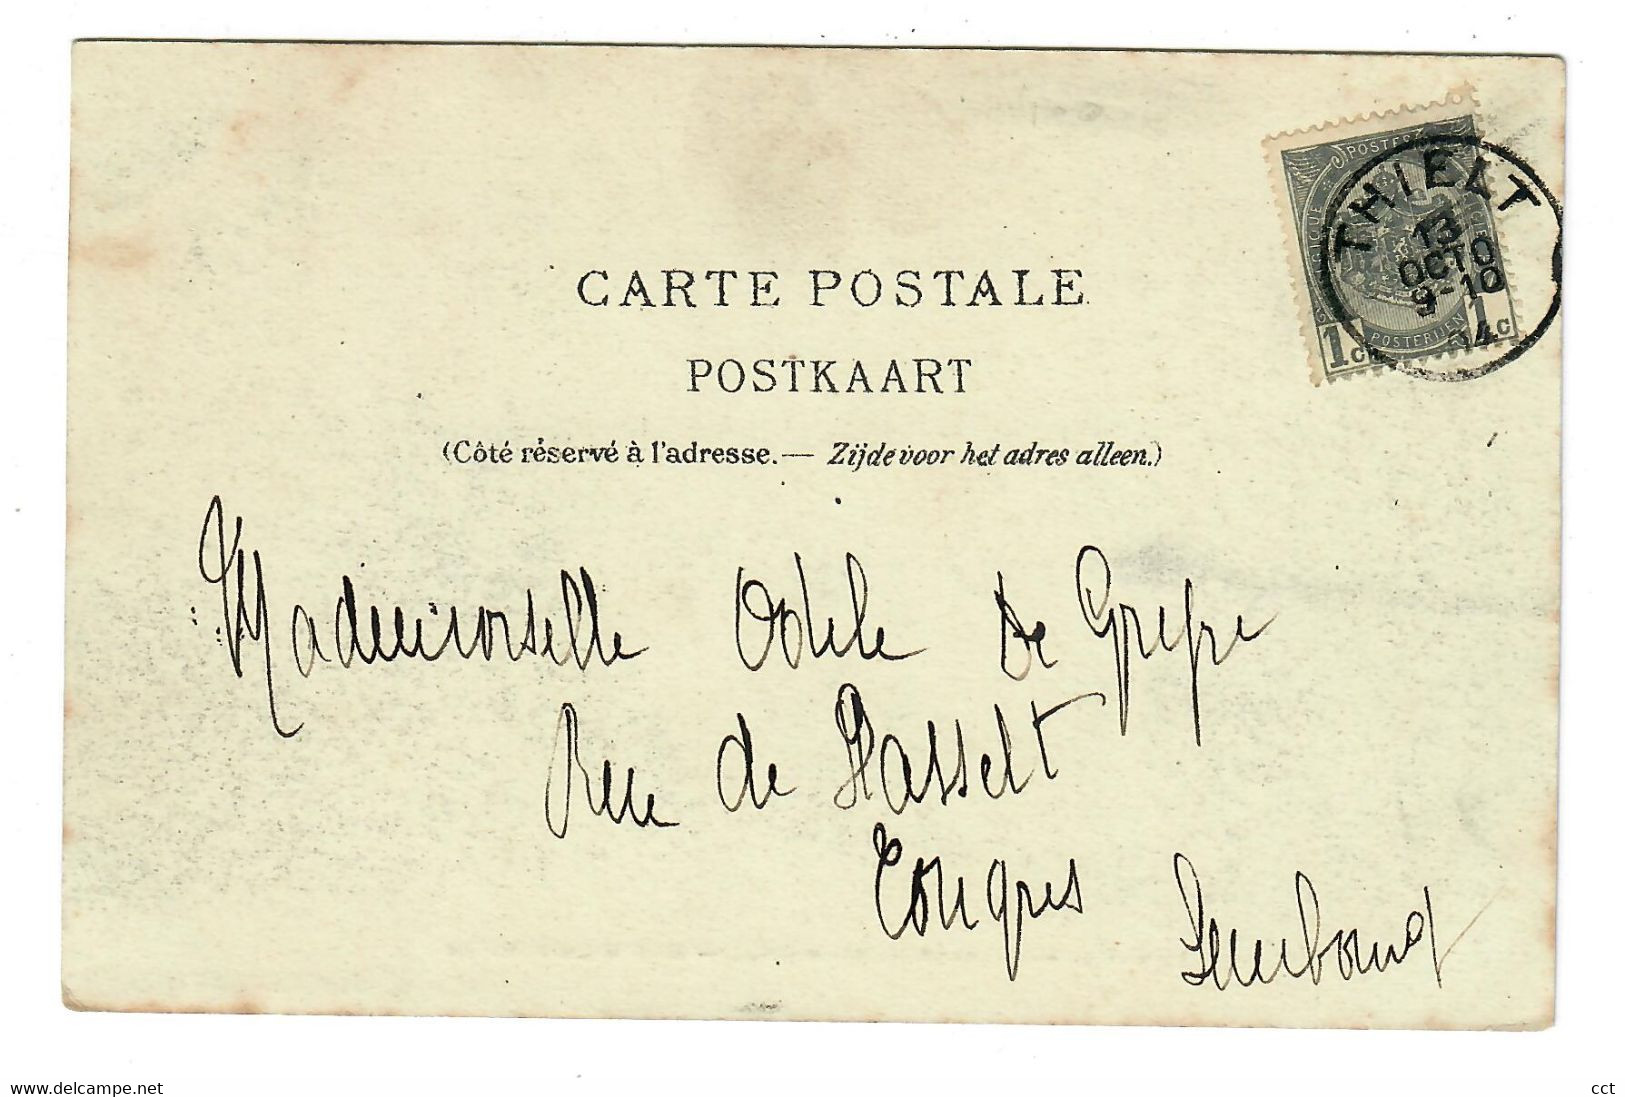 CARTE POSTALE
POSTKAART
(Côté réservé à l'adresse.— Zijde voor het adres alleen.)
THIELT
13
OCTO
9-10
04
POSTERIJEN
1c 1c
Mademoiselle Odile De Grefre
Rue de Hasselt
Tongres Limbourg
www.delcampe.net
cct